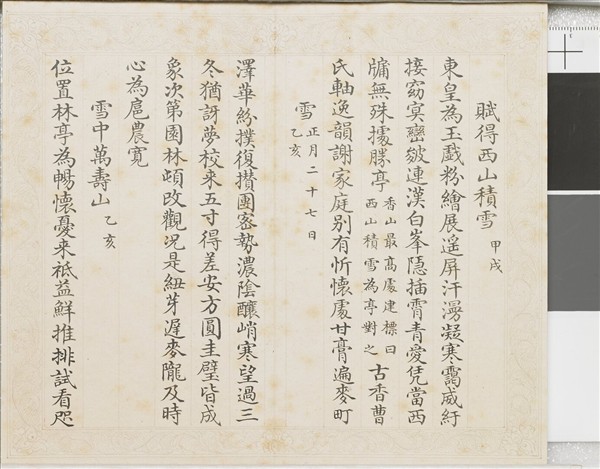 賦得西山積雪 甲戌
東皇為玉戲粉繪展遙屏汗漫凝寒靄威紆
接窈冥巒皴連漢白峯隱插霄青愛凭當西
牖無殊據勝亭香山最高處建標曰西山積雪為亭對之古香曹
氏軸逸韻謝家庭別有忻懷處甘膏遍麥町
雪 正月二十七日 乙亥
澤華紛撲復攢團密勢濃陰釀峭寒望過三
冬猶訝夢校來五寸得差安方圓圭璧皆成
象次第園林頓改觀況是紐芽遲麥隴及時
心為扈農寬
雪中萬壽山 乙亥
位置林亭為暢懷憂來祗益鮮推排試看咫